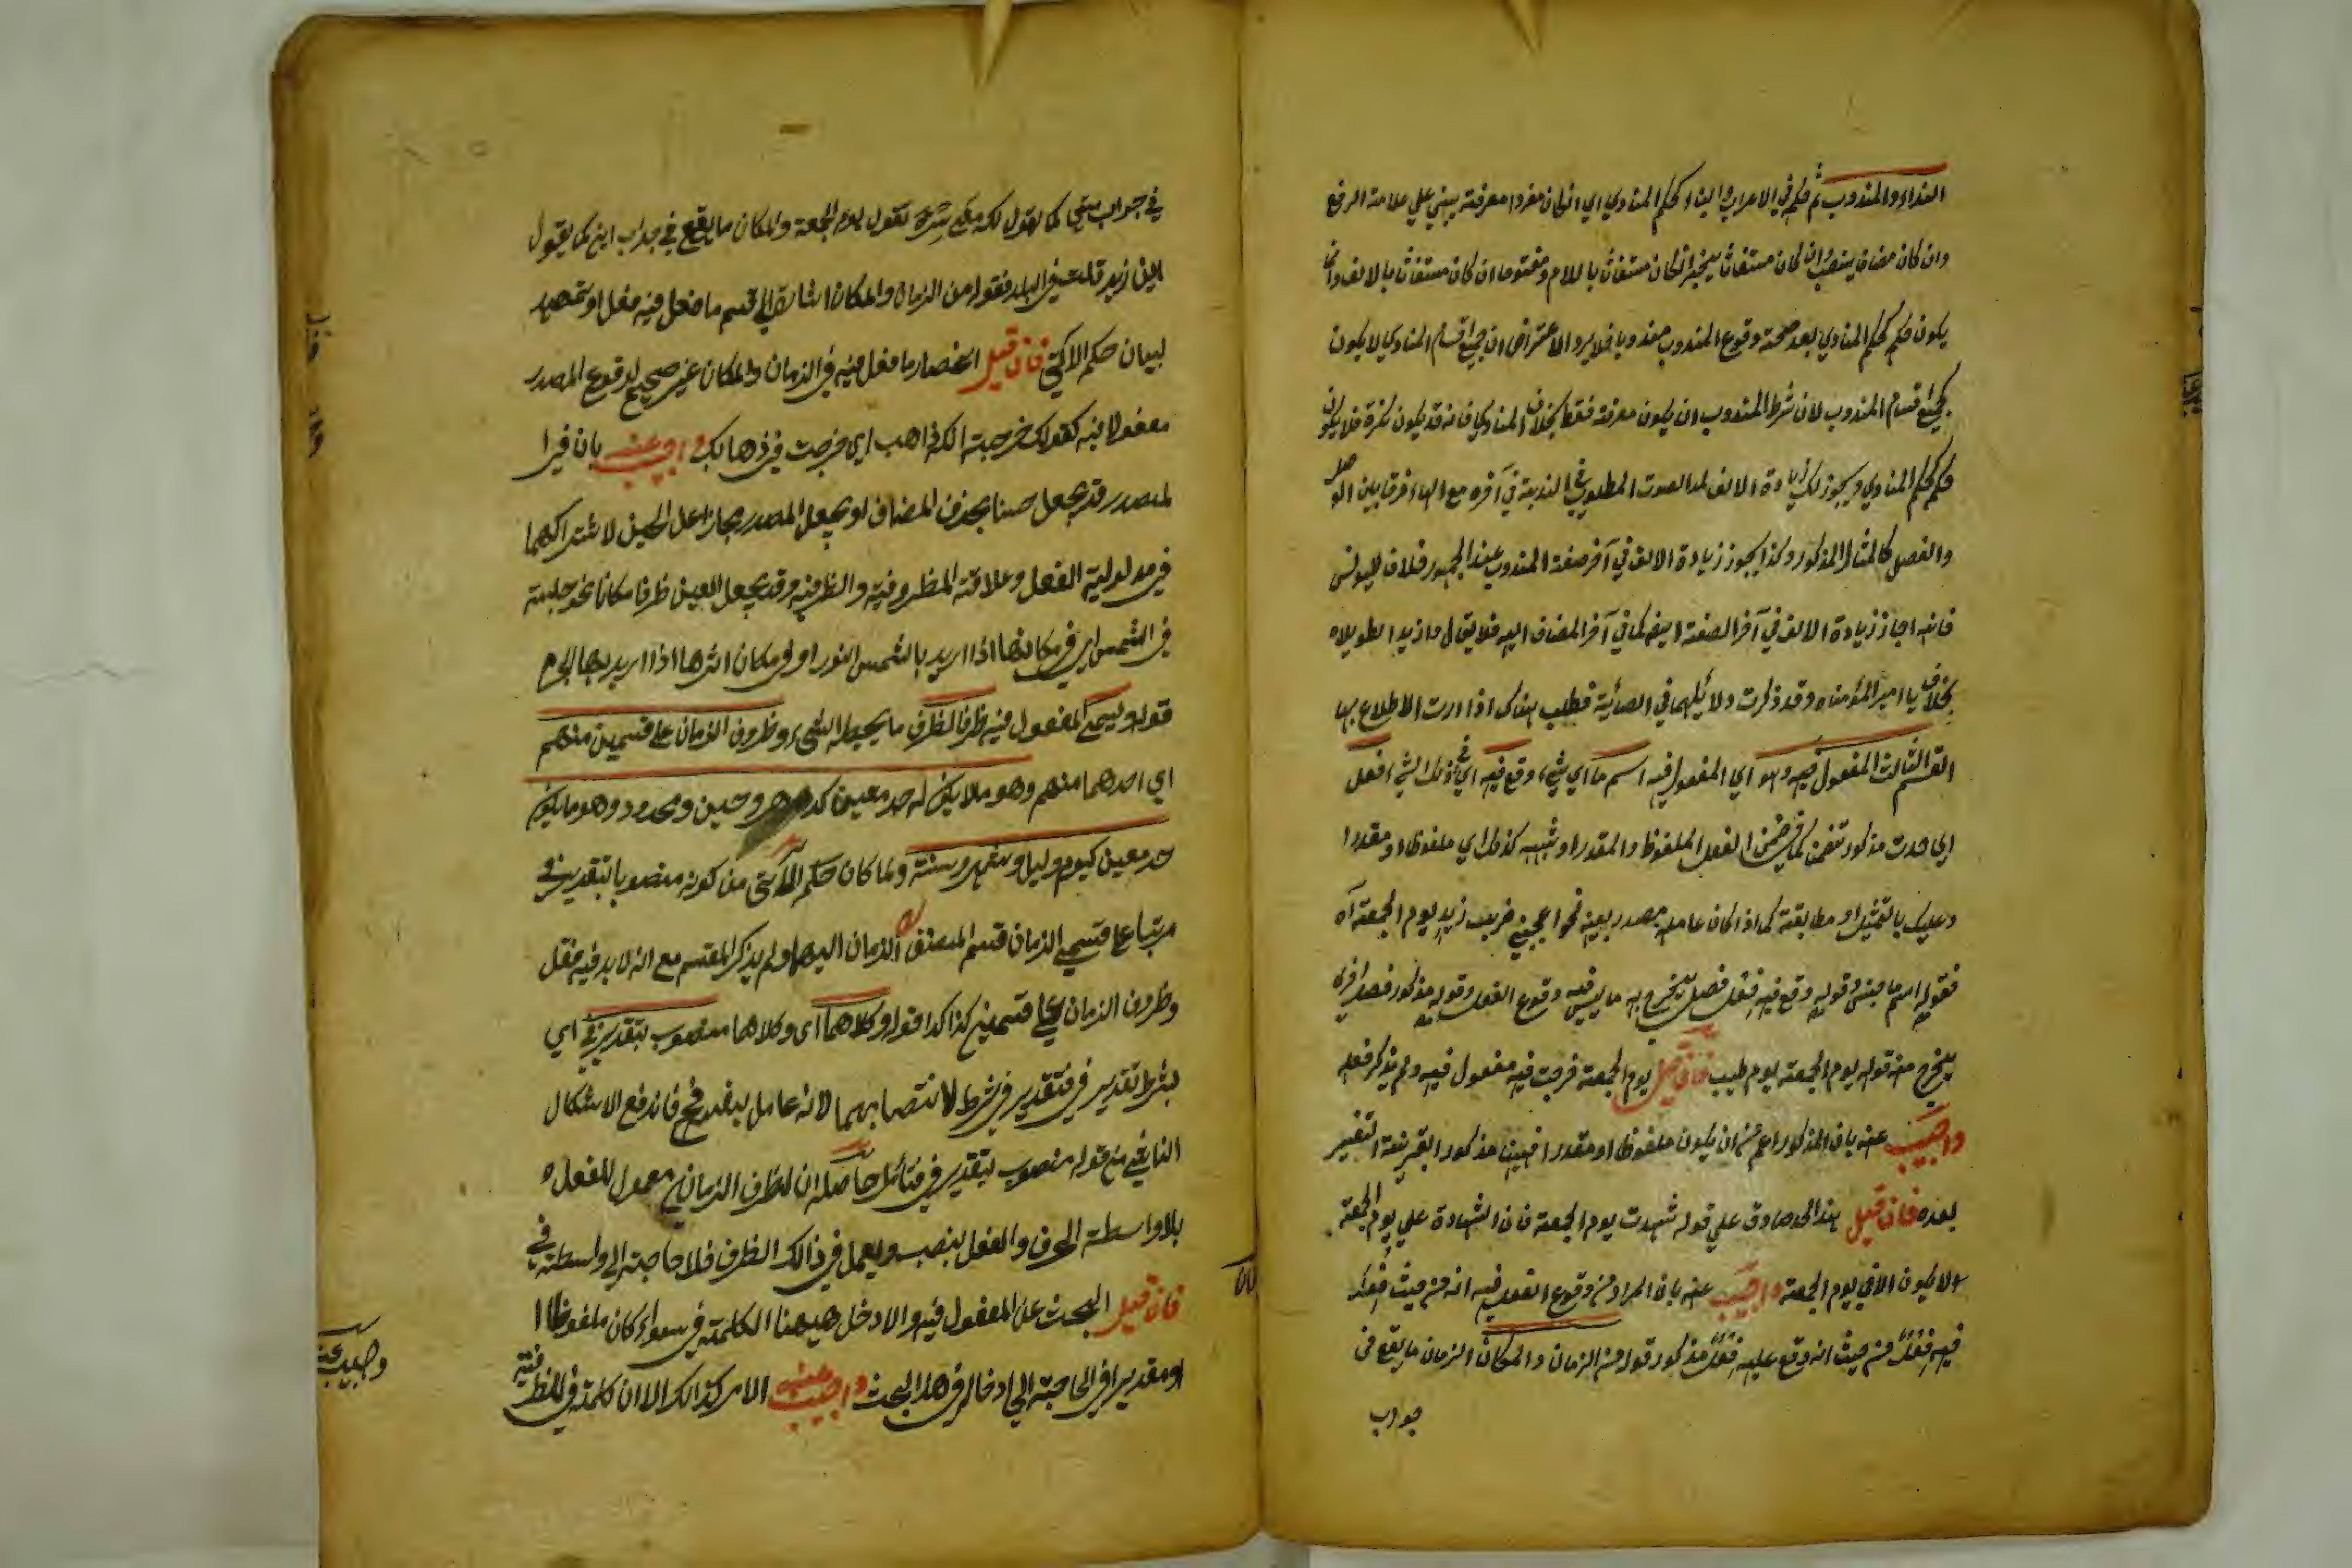 النداء والمندوب ثم حكم في الاعراب والبناء كحكم المنادي اي ان كان مفردا معرفة يبني علي علامة الرفع
وان كان مضافا ينصب وان كان مستغاثا يخفض ان كان مستغاثا باللام ومفتوحا ان كان مستغاثا بالالف وانما
يكون حكم كحكم المنادي بعد صحة وقوع المندوب مندوبا فلا يرد الاعتراض ان جميع اقسام المنادي لا يكون
لجميع اقسام المندوب لان شرط المندوب ان يكون معرفة فقط بخلاف المنادي فانه قد يكون نكرة فلا يكون
حكم كحكم المنادي ويجوز لك زيادة الالف لمد الصوت المطلوب في الندبة في آخره مع الهاء فرقا بين الوصل
والفصل كالمثال المذكور وكذا يجوز زيادة الالف في آخر صفة المندوب عند الجمهور خلافا ليونس
فانه اجاز زيادة الالف في آخر الصفة ايضا كما في آخر المضاف اليه فلا يقال وا زيد الطويلاه
بخلاف يا امير المؤمناه وقد ذكرت دلائلهما في فطلب هناك اذا اردت الاطلاع بها
القسم الثالث المفعول فيه وهو اي المفعول فيه اسم ما اي شيء وقع فيه اي في ذلك الشيء فعل
اي حدث مذكور تضمنا في ضمن الفعل الملفوظ والمقدر او شبهه كذلك اي ملفوظا او مقدرا
وعليك بالتمثيل او مطابقة كما اذا كان عامله مصدر بعينه نحو اعجبني ضرب زيد يوم الجمعة آه
فقوله اسم ما جنس وقوله وقع فيه فعل فصل يخرج به ما ليس فيه وقوع الفعل وقوله مذكور فصل اخري
يخرج منه قوله يوم الجمعة يوم طيب فان قيل يوم الجمعة خرجت فيه مفعول فيه ولم يذكر فعله
واجيب عنه بان المذكور اعم من ان يكون ملفوظا او مقدرا فهنا مذكور القرينة التفسير
بعده فان قيل هذا الحد صادق علي قوله شهدت يوم الجمعة فان الشهادة علي يوم الجمعة
لا يكون الا في يوم الجمعة واجيب عنه بان المراد من وقوع الفعل فيه انه من حيث فعل
فيه فعل من حيث انه وقع عليه فعل مذكور قوله من الزمان والمكان الزمان ما يقع في
جواب
في جواب متي كما يقول لك متي سرت تقول يوم الجمعة والمكان ما يقع في جواب اين كما يقول
اين زيد قلت في البلد فقوله من الزمان والمكان اشارة الي قسم ما فعل فيه فعل او تمهيد
لبيان حكم الاتي فان قيل انحصار ما فعل فيه في الزمان والمكان غير صحيح لوقوع المصدر
مفعولا فيه كقولك خرجت انك ذاهب اي خرجت في ذهابك واجيب عنه بان
المصدر قد يجعل حينا بحذف المضاف او يجعل المصدر مجازا عن الحين لاشتراكهما
في مدلولية الفعل وعلاقة المظروفية والظرفية وقد يجعل العين ظرفا مكانا نحو جلست
في الشمس اي في مكانها اذا اريد بالشمس النور او في مكان اثرها اذا اريد بها الجرم
قوله ويسمي المفعول فيه ظرفا الظرف ما يحيط الشيء وظروف الزمان علي قسمين منهم
اي احدهما منهم وهو ما لا يكون له حد معين كدهر وحين ومحدود وهو ما يكون
حد معين كيوم وليل وشهر وسنة ولما كان حكم الاتي من كونه منصوبا بتقدير في
مرتبا علي قسمي الزمان قسم المصنف الزمان اليها ولم يذكر المقسم مع انه لا بد فيه فقل
وظروف الزمان علي قسمين كذا كذا قوله وكلاهما اي وكلاهما منصوب بتقدير في اي
بشرط تقدير في فتقدير في شرط لانتصابهما لانه عامل فاندفع الاشكال
من قوله منصوب بتقدير في فتأمل حاصله ان لظرف الزمان معمول للفعل
بلا واسطة الحرف والفعل ينصب ويعمل في ذالك الظرف فلا حاجة الي واسطة في
فان قيل البحث عن المفعول فيه ولا دخل هيهنا الكلمة في سواء كان ملفوظا
او مقدرا في الحاجة الي ادخال في هذا البحث واجيب عنه الامر كذالك الا ان كلمة في للظرفية
واجيب عنه